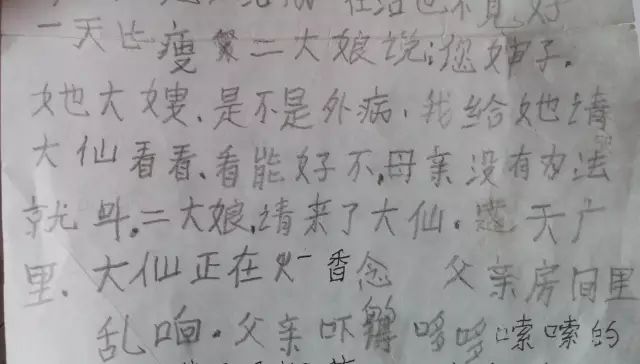 在治也不见好
一天比瘦 二大娘说:您婶子.
她大嫂、是不是外病,我给她请
大仙看看、看能好不,母亲没有办法
就叫,二大娘,请来了大仙. 天广
里.大仙正在 香念 父亲房间里
乱响.父亲吓 哆哆嗦嗦的